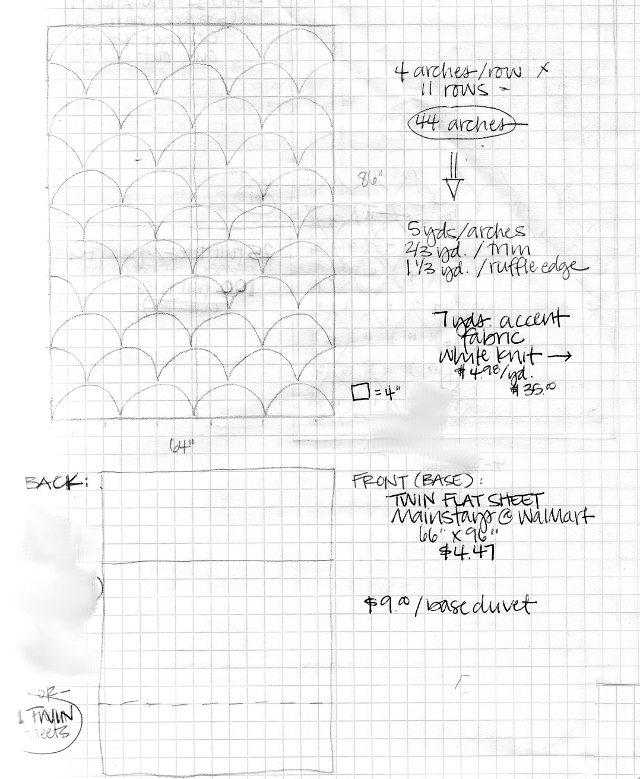 4 arches/row x
11 rows -
44 arches
86"
5 yds/arches
2/3 yd. / trim
1 1/3 yd. / ruffle edge
7 yds. accent
fabric
White knit →
$4.98/yd.
$35.00
= 4"
64"
BACK:
FRONT (BASE):
TWIN FLAT SHEET
Mainstays @ Walmart
66" x 96"
$4.47
$9.00 / base duvet
-OR-
TWIN